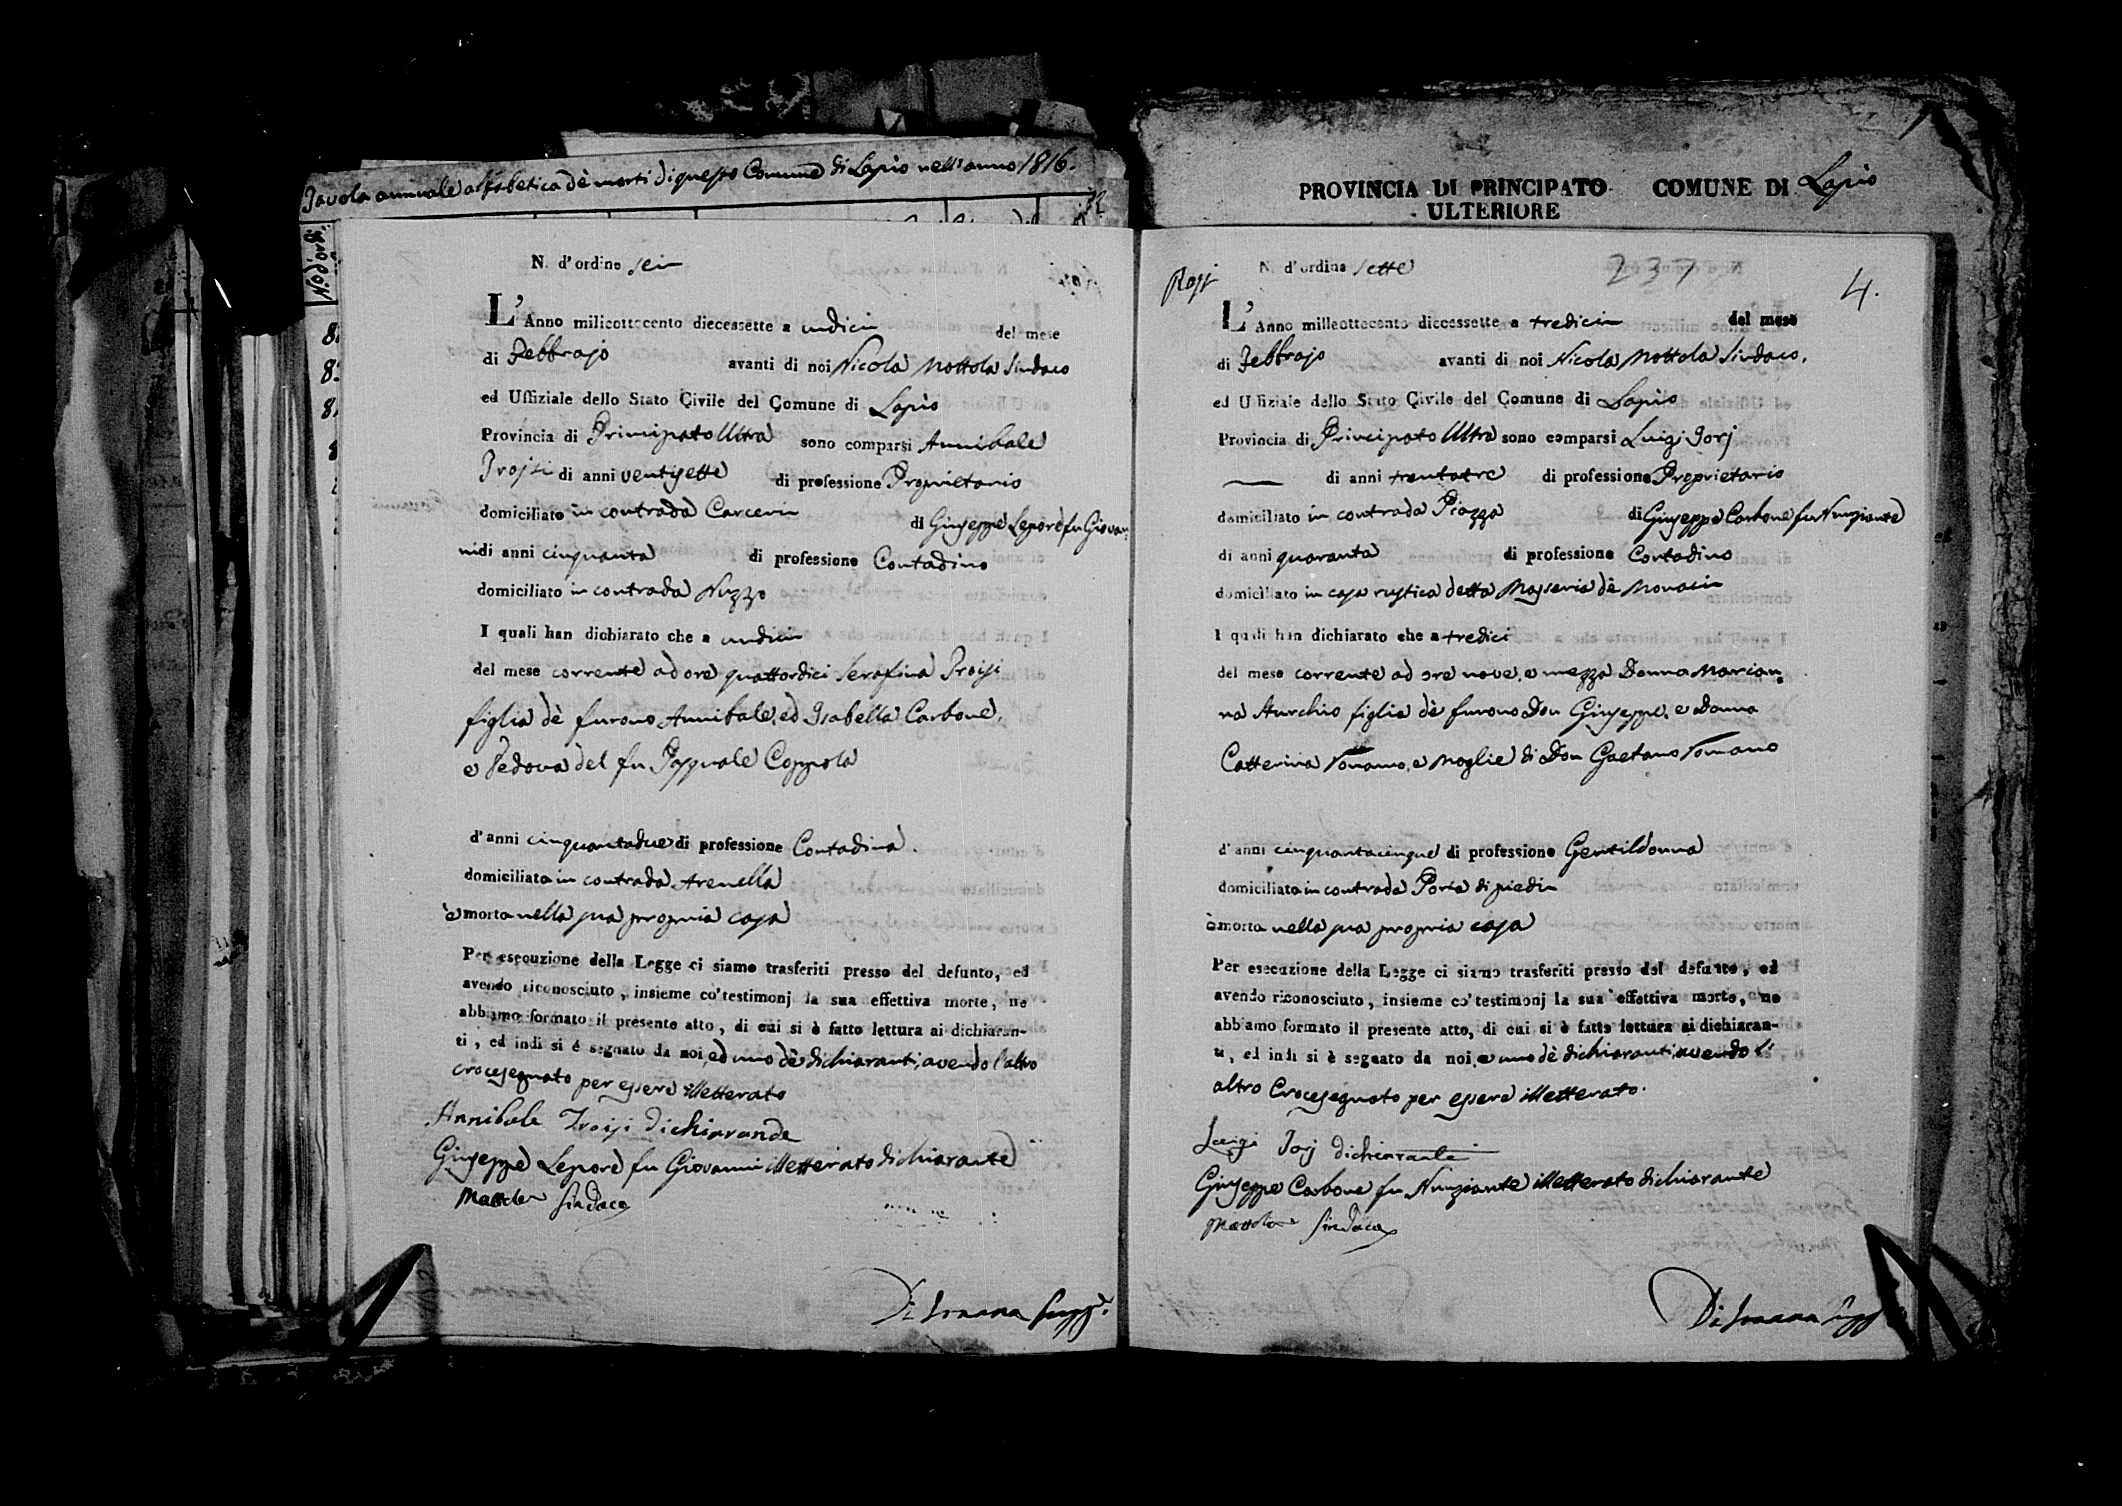 Tavola annuale alfabetica dè morti di questo Comune di Lapio nell'anno 1816.
N.o d'ord.
N. d'ordine sei
L'Anno milleottocento diecessette a undici del mese
di Febbrajo avanti di noi Nicola Mottola Sindaco
ed Uffiziale dello Stato Civile del Comune di Lapio
Provincia di Principato Ultra sono comparsi Annibale
Troisi di anni ventisette di professione Proprietario
domiciliato in contrada Carceri di Giuseppe Lepore fu Giovan-
ni di anni cinquanta di professione Contadino
domiciliato in contrada Nuzzo
I quali han dichiarato che a undici
del mese corrente ad ore quattordici Serafina Troisi
figlia dè furono Annibale, ed Isabella Carbone,
e Vedova del fu Pasquale Coppola
d'anni cinquantadue di professione Contadina.
domiciliata in contrada Arenella
è morta nella sua propria casa
Per esecuzione della Legge ci siamo trasferiti presso del defunto, ed
avendo riconosciuto, insieme co' testimonj la sua effettiva morte, ne
abbiamo formato il presente atto, di cui si è fatto lettura ai dichiaran-
ti, ed indi si é segnato da noi, ed uno dè dichiaranti, avendo l'altro
crocesegnato per essere illetterato
Annibale Troisi dichiarande
Giuseppe Lepore fu Giovanni illetterato dichiarante
Mottola Sindaco
PROVINCIA DI PRINCIPATO COMUNE DI Lapio
ULTERIORE
N. d'ordine sette
237
4.
L'Anno milleottocento diecessette a tredici del mese
di Febbrajo avanti di noi Nicola Mottola Sindaco,
ed Uffiziale dello Stato Civile del Comune di Lapio
Provincia di Principato Ultra sono comparsi Luigi Jorj
di anni trentatre di professione Proprietario
domiciliato in contrada Piazza di Giuseppe Carbone fu Nunziante
di anni quaranta di professione Contadino
domiciliato in casa rustica detta Masseria dè Monaci
I quali han dichiarato che a tredici
del mese corrente ad ore nove, e mezza Donna Marian-
na Aurchio figlia dè furono Don Giuseppe, e Donna
Catterina Romano, e Moglie di Don Gaetano Romano
d'anni cinquantacinque di professione Gentildonna
domiciliata in contrada Porta di piedi
è morta nella sua propria casa
Per esecuzione della Legge ci siamo trasferiti presso del defunto, ed
avendo riconosciuto, insieme co' testimonj la sua effettiva morte, ne
abbiamo formato il presente atto, di cui si è fatta lettura ai dichiaran-
ti, ed indi si è segnato da noi, e uno dè dichiaranti, avendo l'
altro Crocesegnato per essere illetterato.
Luigi Jorj dichiarante
Giuseppe Carbone fu Nunziante illetterato dichiarante
Mottola Sindaco